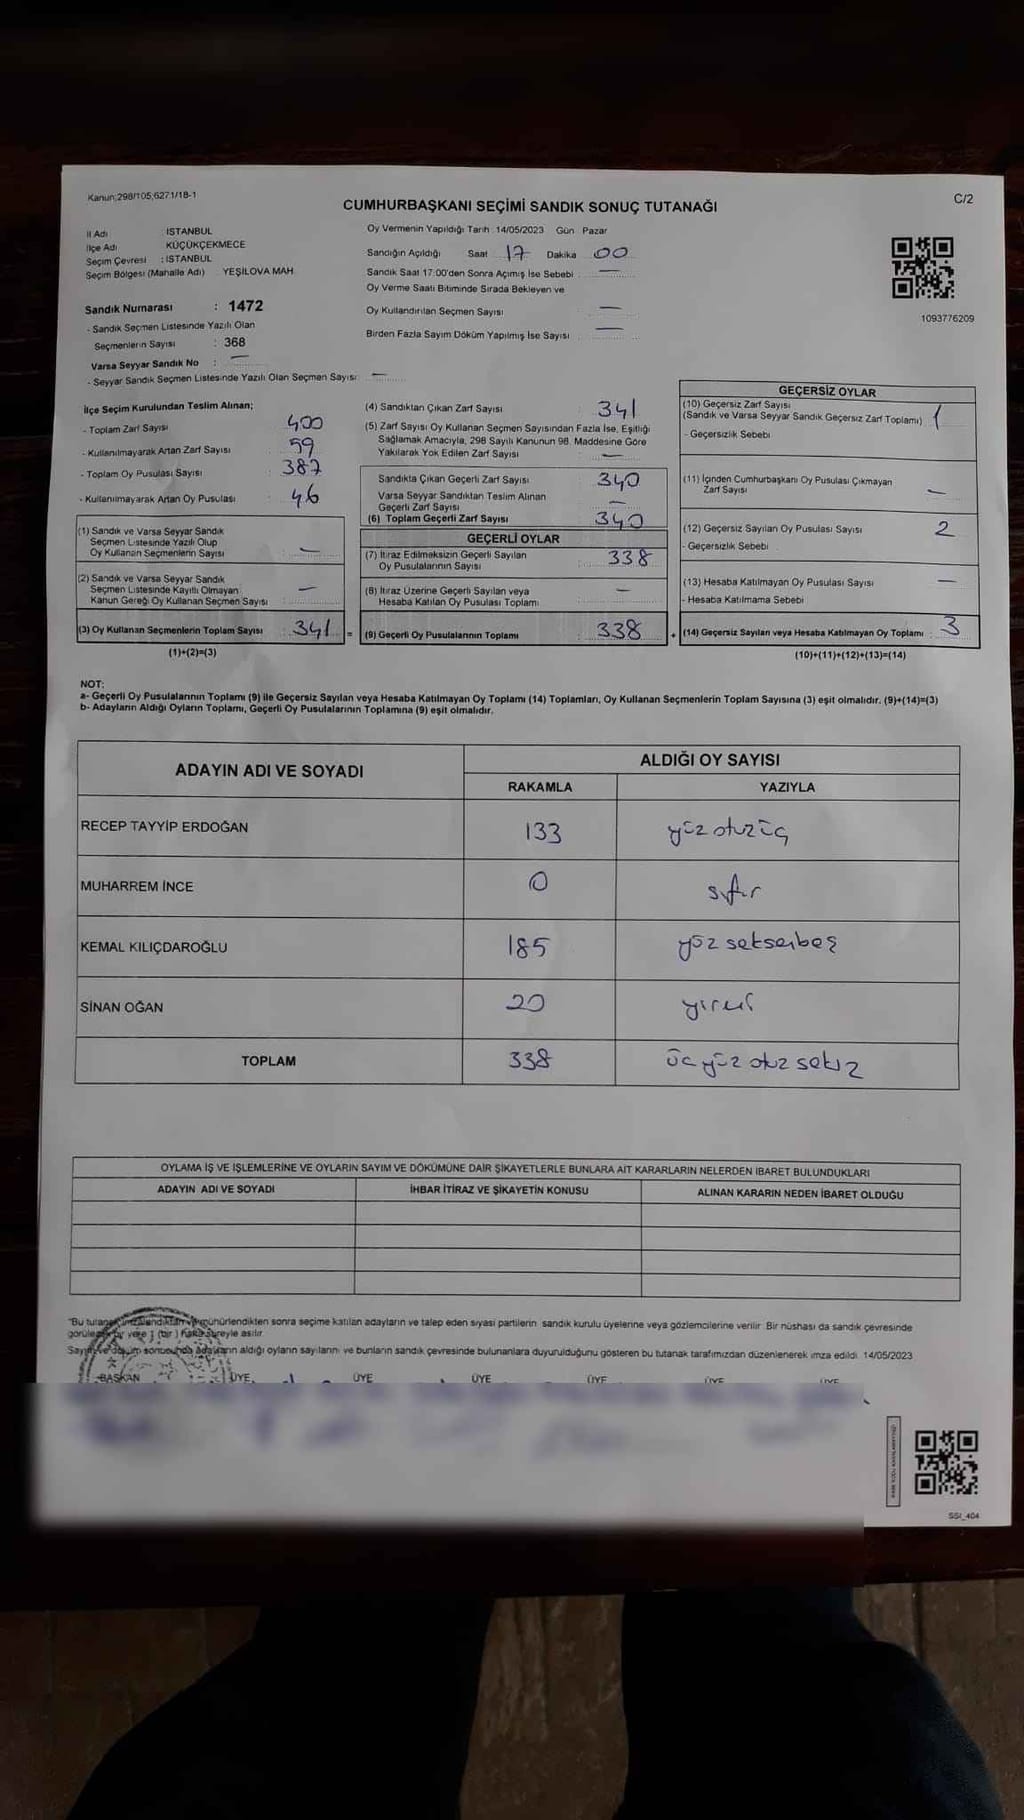 Kanun;298/105;6271/18-1
C/2
CUMHURBAŞKANI SEÇİMİ SANDIK SONUÇ TUTANAĞI
İl Adı : İSTANBUL
İlçe Adı KÜÇÜKÇEKMECE
Seçim Çevresi : İSTANBUL
Seçim Bölgesi (Mahalle Adı) YEŞİLOVA MAH.
Sandık Numarası : 1472
- Sandık Seçmen Listesinde Yazılı Olan
Seçmenlerin Sayısı : 368
Varsa Seyyar Sandık No : —
- Seyyar Sandık Seçmen Listesinde Yazılı Olan Seçmen Sayısı : —
Oy Vermenin Yapıldığı Tarih : 14/05/2023 Gün Pazar
Sandığın Açıldığı Saat 17 Dakika 00
Sandık Saat 17:00'den Sonra Açılmış İse Sebebi : —
Oy Verme Saati Bitiminde Sırada Bekleyen ve
Oy Kullandırılan Seçmen Sayısı : —
Birden Fazla Sayım Döküm Yapılmış İse Sayısı : —
1093776209
İlçe Seçim Kurulundan Teslim Alınan;
- Toplam Zarf Sayısı : 400
- Kullanılmayarak Artan Zarf Sayısı : 59
- Toplam Oy Pusulası Sayısı : 387
- Kullanılmayarak Artan Oy Pusulası : 46
(1) Sandık ve Varsa Seyyar Sandık
Seçmen Listesinde Yazılı Olup
Oy Kullanan Seçmenlerin Sayısı : —
(2) Sandık ve Varsa Seyyar Sandık
Seçmen Listesinde Kayıtlı Olmayan
Kanun Gereği Oy Kullanan Seçmen Sayısı : —
(3) Oy Kullanan Seçmenlerin Toplam Sayısı : 341 =
(1)+(2)=(3)
(4) Sandıktan Çıkan Zarf Sayısı : 341
(5) Zarf Sayısı Oy Kullanan Seçmen Sayısından Fazla İse, Eşitliği
Sağlamak Amacıyla, 298 Sayılı Kanunun 98. Maddesine Göre
Yakılarak Yok Edilen Zarf Sayısı : —
Sandıkta Çıkan Geçerli Zarf Sayısı : 340
Varsa Seyyar Sandıktan Teslim Alınan
Geçerli Zarf Sayısı : —
(6) Toplam Geçerli Zarf Sayısı : 340
GEÇERLİ OYLAR
(7) İtiraz Edilmeksizin Geçerli Sayılan
Oy Pusulalarının Sayısı : 338
(8) İtiraz Üzerine Geçerli Sayılan veya
Hesaba Katılan Oy Pusulası Toplamı : —
(9) Geçerli Oy Pusulalarının Toplamı : 338 +
GEÇERSİZ OYLAR
(10) Geçersiz Zarf Sayısı
(Sandık ve Varsa Seyyar Sandık Geçersiz Zarf Toplamı) : 1
- Geçersizlik Sebebi
(11) İçinden Cumhurbaşkanı Oy Pusulası Çıkmayan
Zarf Sayısı —
(12) Geçersiz Sayılan Oy Pusulası Sayısı 2
- Geçersizlik Sebebi
(13) Hesaba Katılmayan Oy Pusulası Sayısı —
- Hesaba Katılmama Sebebi
(14) Geçersiz Sayılan veya Hesaba Katılmayan Oy Toplamı : 3
(10)+(11)+(12)+(13)=(14)
NOT:
a- Geçerli Oy Pusulalarının Toplamı (9) ile Geçersiz Sayılan veya Hesaba Katılmayan Oy Toplamı (14) Toplamları, Oy Kullanan Seçmenlerin Toplam Sayısına (3) eşit olmalıdır. (9)+(14)=(3)
b- Adayların Aldığı Oyların Toplamı, Geçerli Oy Pusulalarının Toplamına (9) eşit olmalıdır.
ADAYIN ADI VE SOYADI
ALDIĞI OY SAYISI
RAKAMLA YAZIYLA
RECEP TAYYİP ERDOĞAN 133 yüz otuz üç
MUHARREM İNCE 0 sıfır
KEMAL KILIÇDAROĞLU 185 yüz seksenbeş
SİNAN OĞAN 20 yirmi
TOPLAM 338 üç yüz otuz sekiz
OYLAMA İŞ VE İŞLEMLERİNE VE OYLARIN SAYIM VE DÖKÜMÜNE DAİR ŞİKAYETLERLE BUNLARA AİT KARARLARIN NELERDEN İBARET BULUNDUKLARI
ADAYIN ADI VE SOYADI İHBAR İTİRAZ VE ŞİKAYETİN KONUSU ALINAN KARARIN NEDEN İBARET OLDUĞU
"Bu tutanak imzalandıktan ve mühürlendikten sonra seçime katılan adayların ve talep eden siyasi partilerin sandık kurulu üyelerine veya gözlemcilerine verilir. Bir nüshası da sandık çevresinde
görülecek bir yere 1 (bir) hafta süreyle asılır.
Sayım ve döküm sonucunda adayların aldığı oyların sayılarını ve bunların sandık çevresinde bulunanlara duyurulduğunu gösteren bu tutanak tarafımızdan düzenlenerek imza edildi. 14/05/2023
BAŞKAN ÜYE ÜYE ÜYE ÜYE ÜYE ÜYE
SSI_404